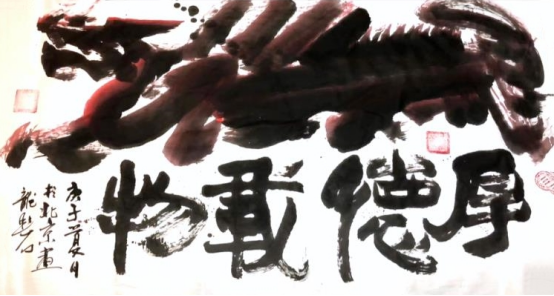 厚德載物
庚子夏月
於北京畫
龍